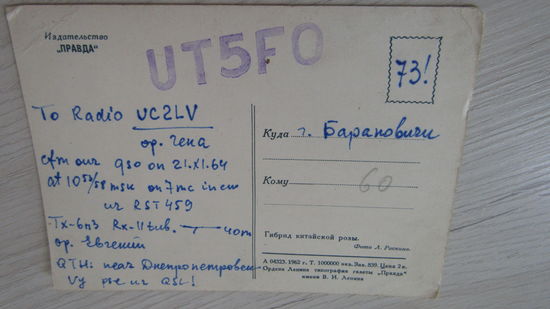 Издательство
„ПРАВДА“
UT5FO
73!
To Radio UC2LV
op. Гена
cfm our qso on 21.XI.64
at 10 53/58 msk on 7mc in cw
ur RST 459
Tx-6п3 Rx-11 tub.
40m
op. Евгений
QTH: near Днепропетровск
Vy pse ur QSL!
Куда г. Барановичи
Кому 60
Гибрид китайской розы.
Фото Л. Раскина.
А 04323. 1962 г. Т. 1000000 экз. Зак. 839. Цена 2 к.
Ордена Ленина типография газеты „Правда“
имени В. И. Ленина